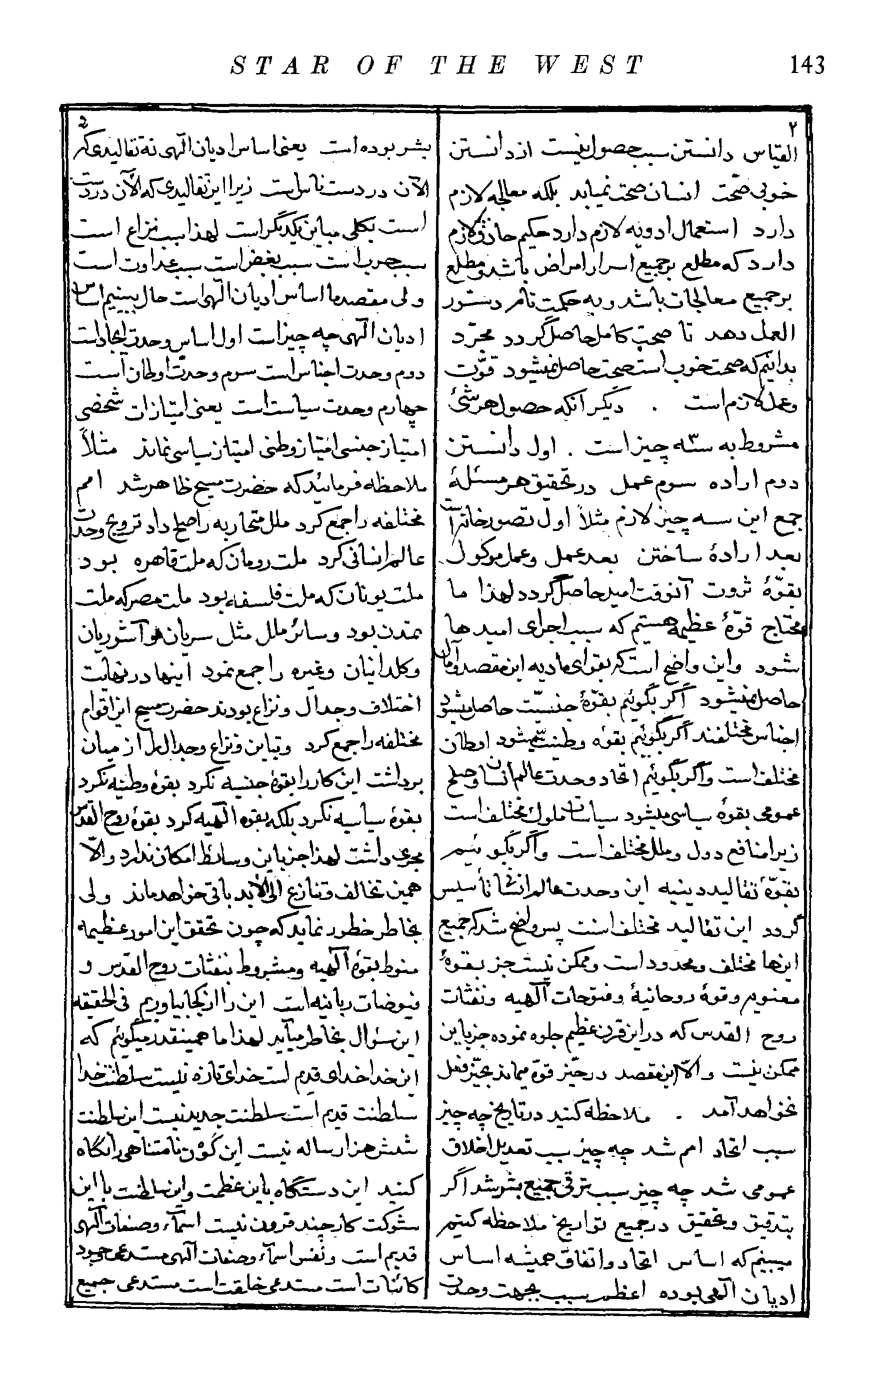 STAR OF THE WEST 143
۲
القیاس دانستن سبب حصول نیست از دانستن
خوبی صحّت انسان صحّت نمیابد بلکه معالجه لازم
دارد استعمال ادویه لازم دارد حکیم حاذق لازم
دارد که مطلع بر جمیع اسرار امراض باشد و مطلع
بر جمیع معالجات باشد و به حکمت تامّ دستور
العمل دهد تا صحت کامل حاصل گردد مجرّد
بدانیم که صحت خوب است صحت حاصل نمیشود قوّت
و عمل لازم است . دیگر آنکه حصول هر شئ
مشروط به سه چیز است . اول دانستن
دوم اراده سوم عمل در تحقیق هر مسئلهٔ
جمع این سه چیز لازم مثلاً اول تصور خانه است
بعد ارادهٔ ساختن بعد عمل و عمل موکول
بقوّهٔ ثروت آنوقت امید حاصل گردد لهذا ما
محتاج قوّهٔ عظیمه هستیم که سبب اجرای امیدها
شود و این واضح است که بقوای مادیه این مقصد و آمال
حاصل نمیشود اگر بگوئیم بقوّهٔ جنسیّت حاصل میشود
اجناس مختلفند اگر بگوئیم بقوه وطنیت میشود اوطان
مختلف است و اگر بگوئیم اتحاد و وحدت عالم انسان و صلح
عمومی بقوهٔ سیاسی میشود سیاسات ملوک مختلف است
زیرا منافع دول و ملل مختلف است و اگر بگوئیم
بقوّهٔ تقالید دینیه این وحدت عالم انسان تأسیس
گردد این تقالید مختلف است پس واضح شد که جمیع
اینها مختلف و محدود است و ممکن نیست جز بقوهٔ
معنویه و قوهٔ روحانیهٔ و فتوحات آلهیه و نفثات
روح القدس که در این قرن عظیم جلوه نموده جز باین
ممکن نیست و الّا این مقصد در حیّز قوّه میماند بحیّز فعل
نخواهد آمد . ملاحظه کنید در تاریخ چه چیز
سبب اتحاد امم شد چه چیز سبب تعدیل اخلاق
عمومی شد چه چیز سبب ترقی جمیع بشر شد اگر
بتدقیق و تحقیق در جمیع تواریخ ملاحظه کنیم
میبینیم که اساس اتحاد و اتفاق همیشه اساس
ادیان آلهی بوده اعظم سبب بجهت وحدت
بشر بوده است یعنی اساس ادیان الهی نه تقالیدی که
الآن در دست ناس است زیرا این تقالیدی که الآن در دست
است بکلی مباین یکدیگر است لهذا سبب نزاع است
سبب حرب است سبب بغض است سبب عداوت است
ولی مقصد ما اساس ادیان الهی است حال ببینیم اساس
ادیان الهی چه چیز است اول اساس وحدت ایجاد است
دوم وحدت اجناس است سوم وحدت اوطان است
چهارم وحدت سیاست است یعنی امتیازات شخصی
امتیاز جنسی امتیاز وطنی امتیاز سیاسی نماند مثلاً
ملاحظه فرمائید که حضرت مسیح ظاهر شد امم
مختلفه را جمع کرد ملل متحاربه را صلح داد ترویج وحدت
عالم انسانی کرد ملت رومان که ملت قاهره بود
ملت یونان که ملت فلسفه بود ملت مصر که ملت
تمدن بود و سائر ملل مثل سریان و آشوریان
و کلدانیان و غیره را جمع نمود اینها در نهایت
اختلاف و جدال و نزاع بودند حضرت مسیح این اقوام
مختلفه را جمع کرد و تباین و نزاع و جدال را از میان
برداشت این کار را بقوهٔ جنسیه نکرد بقوهٔ وطنیه نکرد
بقوهٔ سیاسیه نکرد بلکه بقوه الهیه کرد بقوهٔ روح القدس
مجری داشت لهذا جز باین وسائط امکان ندارد و الّا
همین تخالف و تنازع الی الأبد باقی خواهد ماند ولی
بخاطر خطور نماید که چون تحقق این امور عظیمه
منوط بقوهٔ الهیه و مشروط بنفثات روح القدس و
فیوضات ربانیه است این را از کجا بیاوریم فی الحقیقه
این سئوال بخاطر میآید لهذا ما همینقدر میگوئیم که
این خدا خدای قدیم است خدای تازه نیست سلطنت خدا
سلطنت قدیم است سلطنت جدید نیست این سلطنت
شش هزار ساله نیست این کون نامتناهی را نگاه
کنید این دستگاه باین عظمت و این سلطنت با این
شوکت کار چند قرون نیست اسماء و صفات الهی
قدیم است و نفس اسماء و صفات الهی مستدعی وجود
کائنات است مستدعی خلقت است مستدعی جمیع